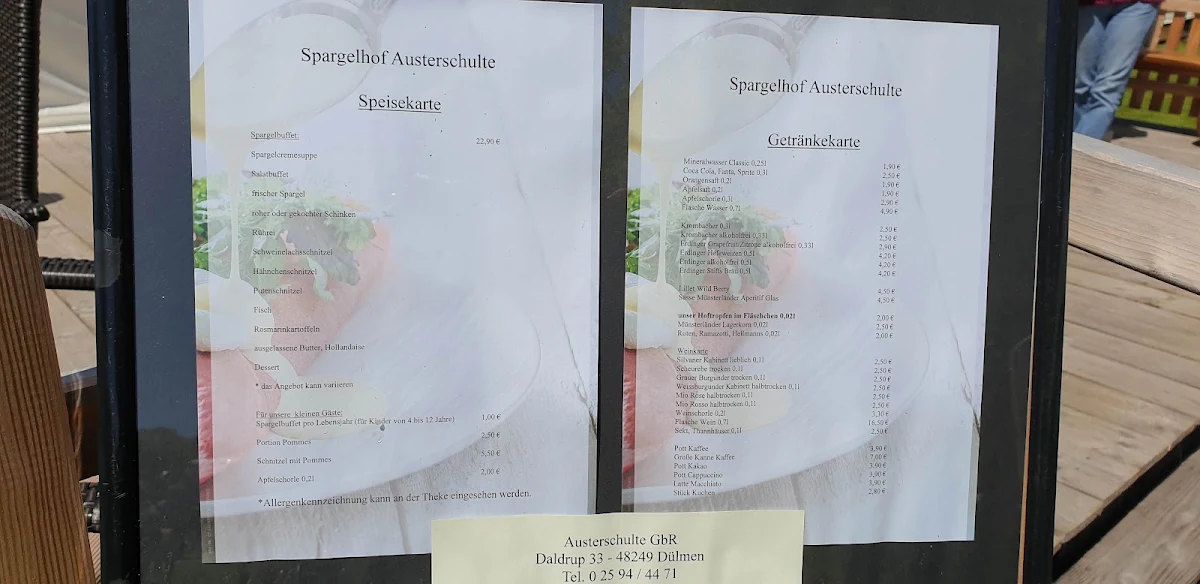 Spargelhof Austerschulte
Speisekarte
Spargelbuffet: 22,90 €
Spargelcremesuppe
Salatbuffet
frischer Spargel
roher oder gekochter Schinken
Rührei
Schweinelachsschnitzel
Hähnchenschnitzel
Putenschnitzel
Fisch
Rosmarinkartoffeln
ausgelassene Butter, Hollandaise
Dessert
* das Angebot kann variieren
Für unsere kleinen Gäste:
Spargelbuffet pro Lebensjahr (für Kinder von 4 bis 12 Jahre) 1,00 €
Portion Pommes 2,50 €
Schnitzel mit Pommes 5,50 €
Apfelschorle 0,2l 2,00 €
*Allergenkennzeichnung kann an der Theke eingesehen werden.
Spargelhof Austerschulte
Getränkekarte
Mineralwasser Classic 0,25l 1,90 €
Coca Cola, Fanta, Sprite 0,3l 2,50 €
Orangensaft 0,2l 1,90 €
Apfelsaft 0,2l 1,90 €
Apfelschorle 0,3l 2,90 €
Flasche Wasser 0,7l 4,90 €
Krombacher 0,3l 2,50 €
Krombacher alkoholfrei 0,33l 2,50 €
Erdinger Grapefruit/Zitrone alkoholfrei 0,33l 2,90 €
Erdinger Hefeweizen 0,5l 4,20 €
Erdinger alkoholfrei 0,5l 4,20 €
Erdinger Stifts Bräu 0,5l 4,20 €
Lillet Wild Berry 4,50 €
Sasse Münsterländer Aperitif Glas 4,50 €
unser Hoftropfen im Fläschchen 0,02l 2,00 €
Münsterländer Lagerkorn 0,02l 2,50 €
Roten, Ramazotti, Heßmanns 0,02l 2,00 €
Weinkarte
Silvaner Kabinett lieblich 0,1l 2,50 €
Scheurebe trocken 0,1l 2,50 €
Grauer Burgunder trocken 0,1l 2,50 €
Weissburgunder Kabinett halbtrocken 0,1l 2,50 €
Mio Rose halbtrocken 0,1l 2,50 €
Mio Rosso halbtrocken 0,1l 2,50 €
Weinschorle 0,2l 3,30 €
Flasche Wein 0,7l 16,50 €
Sekt, Thannhäuser 0,1l 2,50 €
Pott Kaffee 3,90 €
Große Kanne Kaffee 7,00 €
Pott Kakao 3,90 €
Pott Cappuccino 3,90 €
Latte Macchiato 3,90 €
Stück Kuchen 2,80 €
Austerschulte GbR
Daldrup 33 - 48249 Dülmen
Tel. 0 25 94 / 44 71